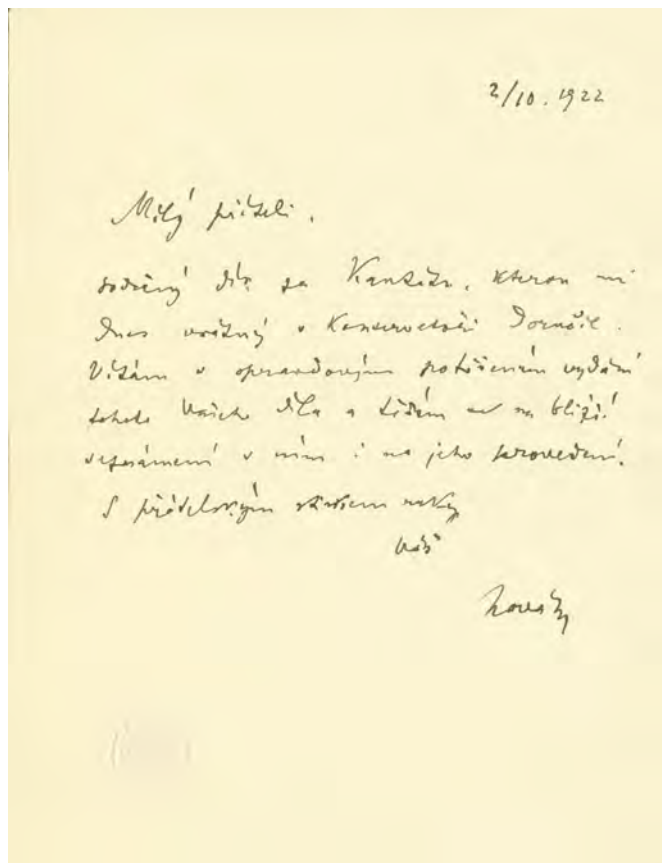 2/10. 1922
Milý příteli,
srdečný dík za Kantátu, kterou mi
dnes vrátný v Konservatoři doručil.
Vítám s opravdovým potěšením vydání
tohoto Vašeho díla a těším se na bližší
seznámení s ním i na jeho provedení.
S přátelským stiskem ruky
Váš
Novák